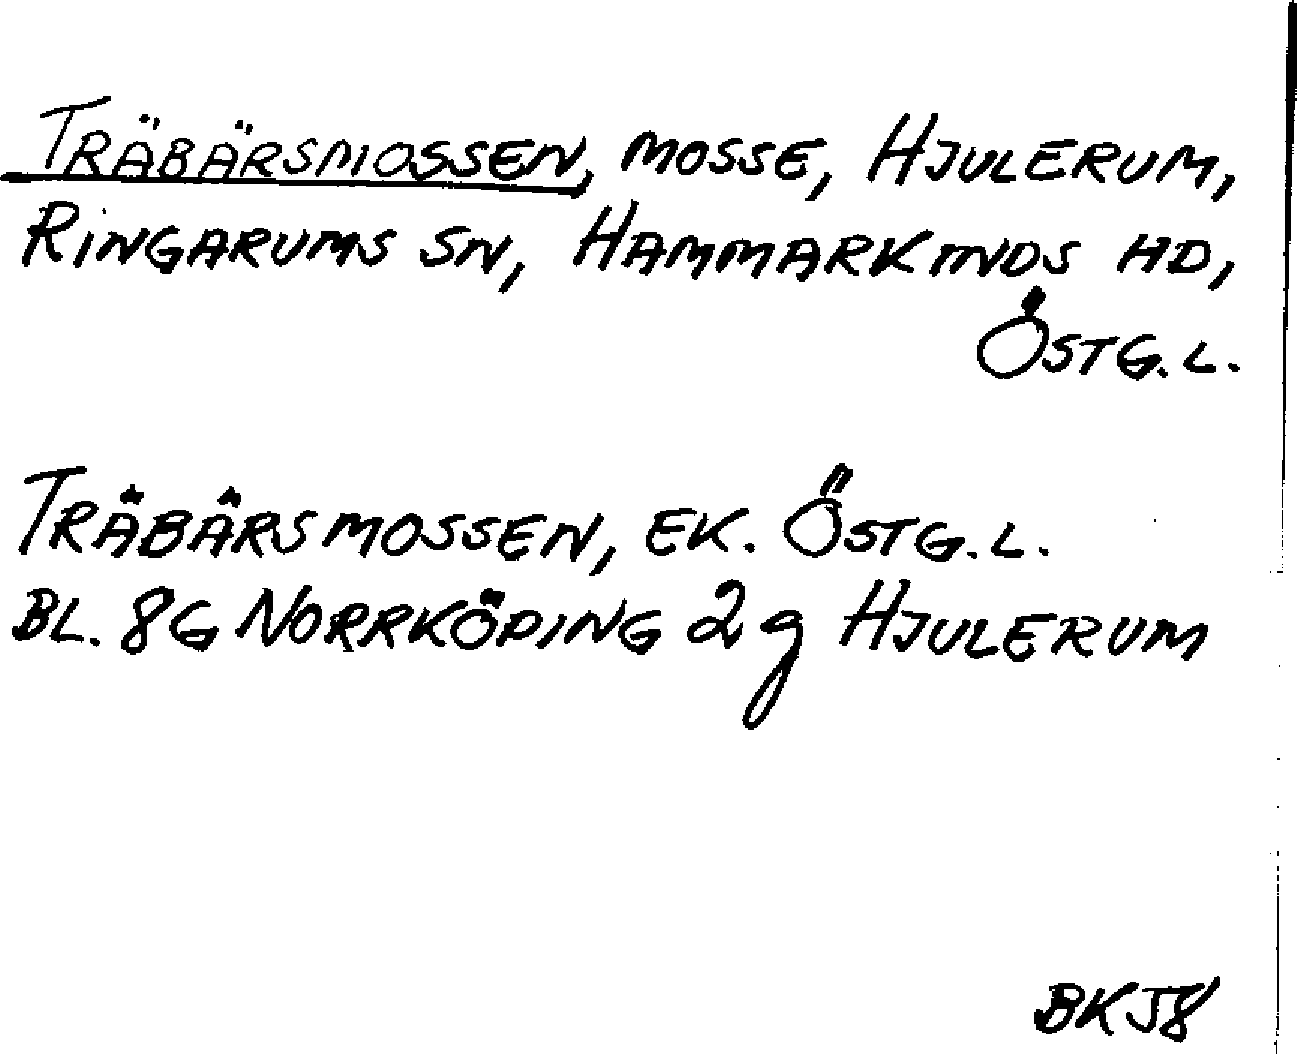 TRÄBÄRSMOSSEN, MOSSE, HJULERUM,
RINGARUMS SN, HAMMARKINDS HD,
ÖSTG.L.
TRÄBÄRSMOSSEN, EK. ÖSTG.L.
BL. 8G NORRKÖPING 2g HJULERUM
BKJ8